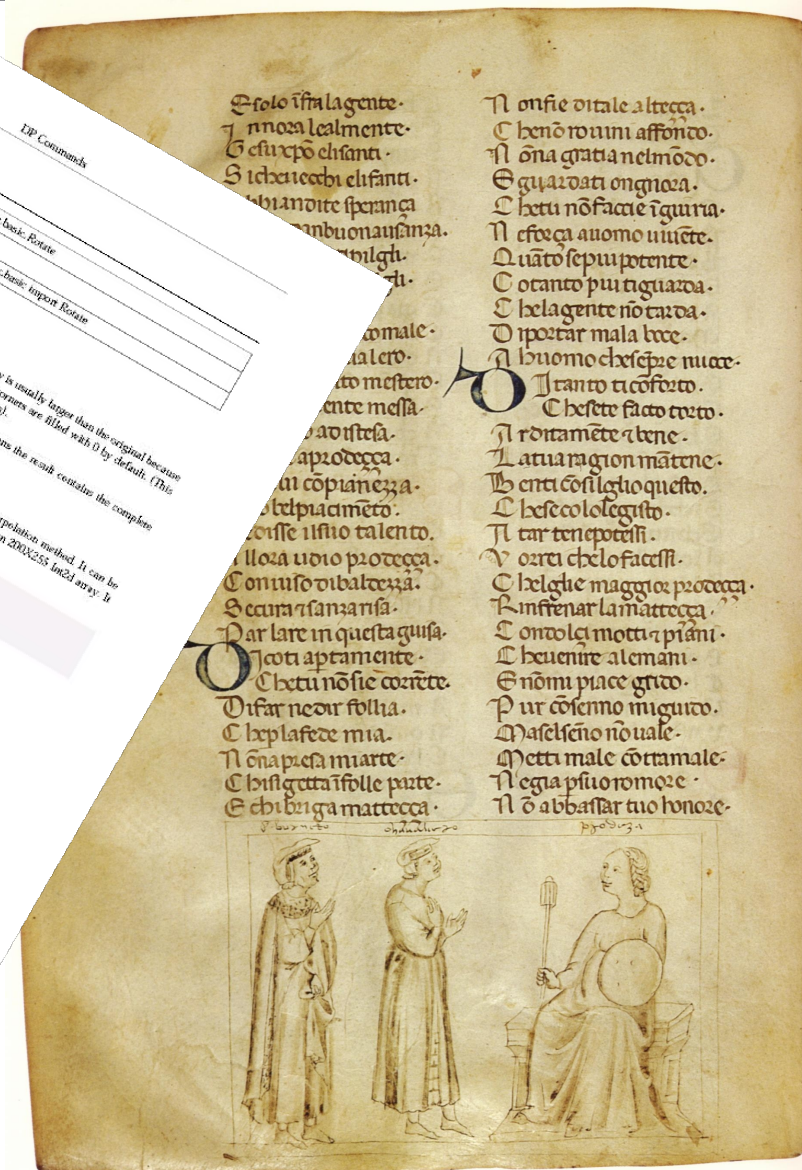 DP Commands
basic.Rotate
.basic import Rotate
y is usually larger than the original because
orners are filled with 0 by default. (This
s).
ns the result contains the complete
polation method. It can be
n 200X255 Int2d array. It
E solo ĩfra lagente·
I nnora lealmente·
G esuxp̄o elisanti·
S icheuecchi elifanti·
bbiandite sperança
anbuonausãnza·
pilgli·
gli·
comale·
ialero·
to mestero·
ente messa·
o adistesa·
aprodeçça·
ui cõpianezza·
o belpiacimẽto·
edisse ilsuo talento.
A llora udio prodeçça·
C onuiso dibaldezzã·
S ecura ⁊sanzarisa·
P ar lare in questa guisa·
D Icoti aptamente·
C hetu nõsie corrẽte·
D ifar nedir follia·
C heplafede mia·
N õna presa miarte·
C hisigetta ĩfolle parte·
E chi briga mattecça·
N onfie ditale altecça·
C henõ rouini affondo·
N õna gratia nelmõdo·
E sguardati ongnora·
C hetu nõfaccie ĩgiuria·
N eforça auomo uiuẽte·
Q uãto sepiu potente·
C otanto piu tiguarda·
C helagente nõ tarda·
D iportar mala boce·
A huomo chesẽpre nuoce·
D Itanto ticõforto·
C hesete facto torto·
A rditamẽte ⁊bene·
L atua ragion mãtene·
B enti cõsilglio questo.
C hesecololegisto·
A tar tenepotessi·
V orrei chelofacessi·
C helglie maggior prodeçça·
R infrenar lamattecça·
C ondolci motti ⁊piãni·
C heuenire alemani·
E nõmi piace grido·
P ur cõsenno miguido·
M aselsẽno nõ uale·
M etti male cõttamale·
N egia psuo romore·
N õ abbassar tuo honore·